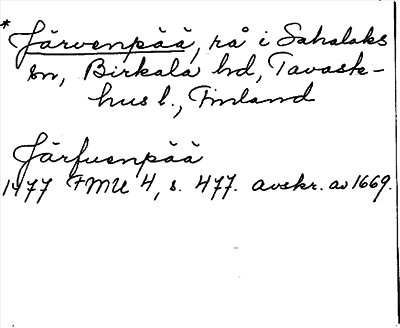 * Järvenpää, rå i Sahalaks
sn, Birkala hd, Tavast-
hus l., Finland
Järfuenpää
1477 FMU 4, s. 477. avskr. av 1669.